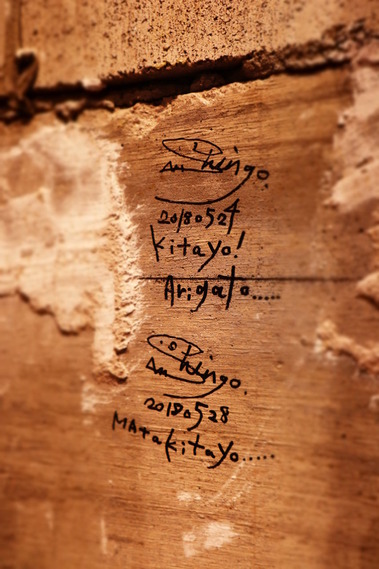 Shingo.
20180524
Kitayo!
Arigato.....
Shingo.
20180528
MAtakitayo.....